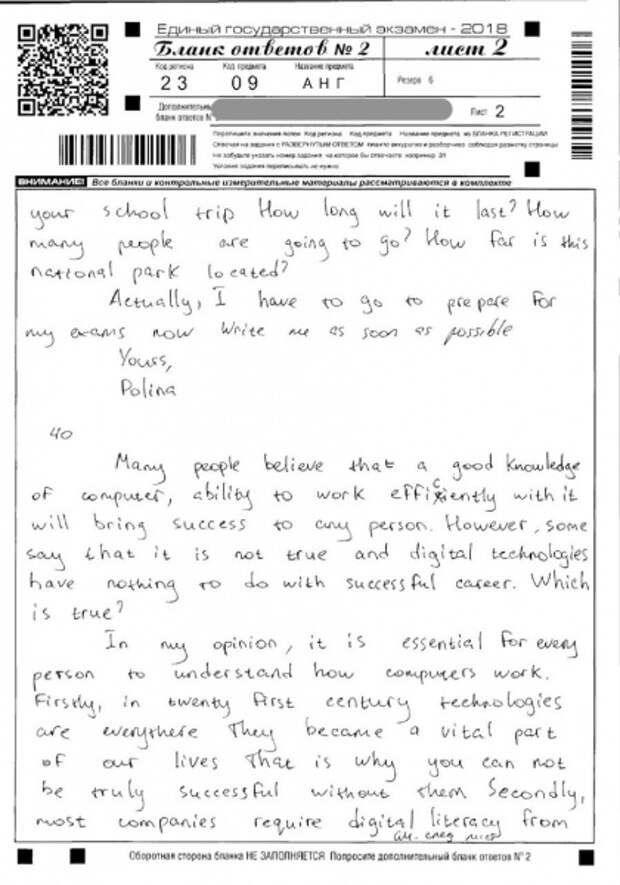 Единый государственный экзамен - 2018
Бланк ответов № 2 лист 2
Код региона Код предмета Название предмета
23 09 АНГ Резерв 6
Дополнительный бланк ответов № Лист 2
Перепишите значения полей Код региона Код предмета Название предмета из БЛАНКА РЕГИСТРАЦИИ
Отвечая на задания с РАЗВЕРНУТЫМ ОТВЕТОМ пишите аккуратно и разборчиво соблюдая разметку страницы
Не забудьте указать номер задания на которое Вы отвечаете например 31
Условия задания переписывать не нужно
ВНИМАНИЕ! Все бланки и контрольные измерительные материалы рассматриваются в комплекте
your school trip How long will it last? How
many people are going to go? How far is this
national park located?
Actually, I have to go to prepare for
my exams now Write me as soon as possible
Yours,
Polina
40
Many people believe that a good knowledge
of computer, ability to work efficiently with it
will bring success to any person. However, some
say that it is not true and digital technologies
have nothing to do with successful career. Which
is true?
In my opinion, it is essential for every
person to understand how computers work.
Firstly, in twenty first century technologies
are everythere They became a vital part
of our lives That is why you can not
be truly successful without them Secondly,
most companies require digital literacy from
см. след лист
Оборотная сторона бланка НЕ ЗАПОЛНЯЕТСЯ Попросите дополнительный бланк ответов № 2